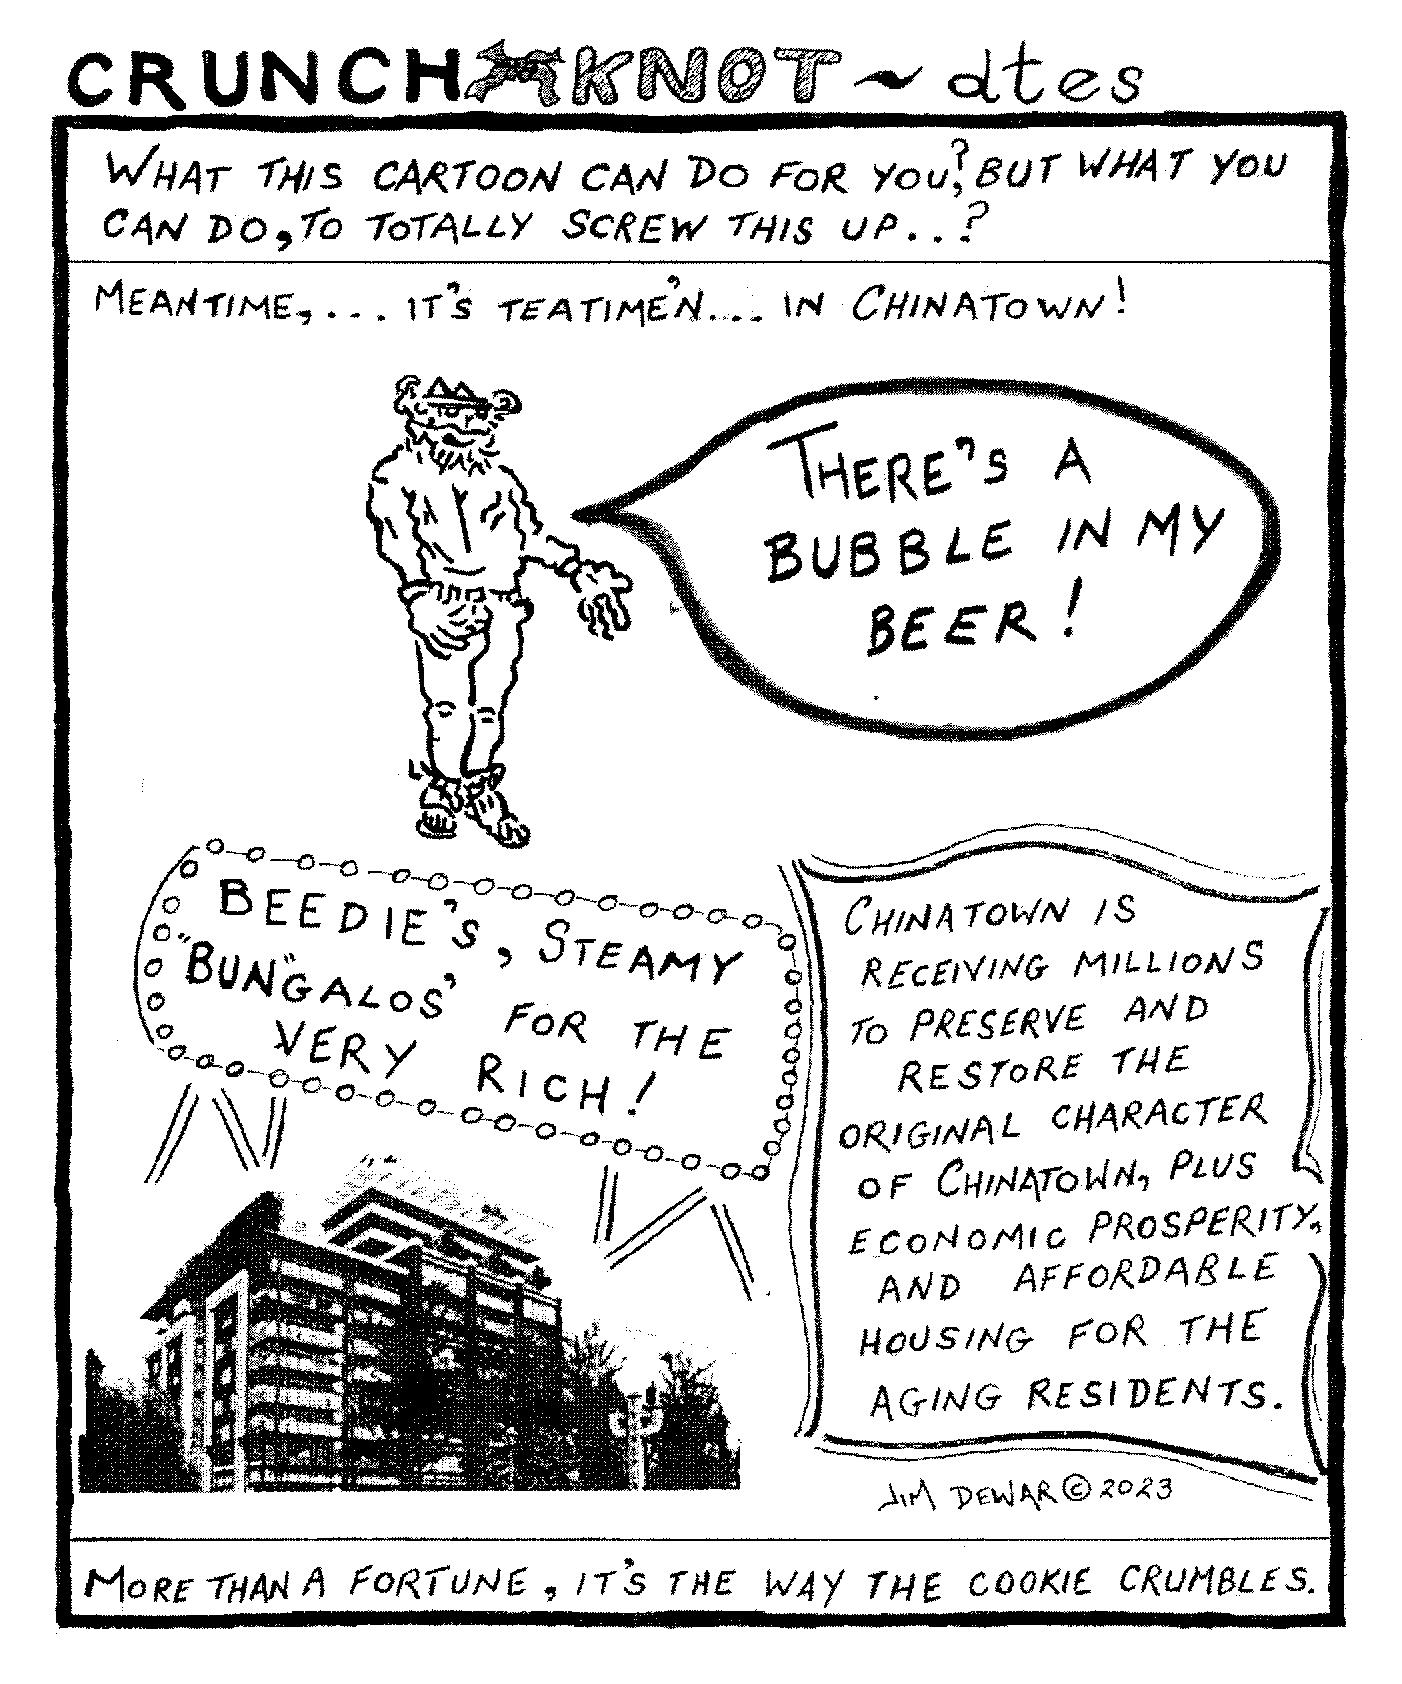 CRUNCH KNOT ~ dtes
WHAT THIS CARTOON CAN DO FOR YOU?, BUT WHAT YOU
CAN DO, TO TOTALLY SCREW THIS UP...?
MEANTIME,... IT'S TEATIME'N... IN CHINATOWN!
THERE'S A
BUBBLE IN MY
BEER!
BEEDIE'S, STEAMY
"BUN"GALOS' FOR THE
VERY RICH!
CHINATOWN IS
RECEIVING MILLIONS
TO PRESERVE AND
RESTORE THE
ORIGINAL CHARACTER
OF CHINATOWN, PLUS
ECONOMIC PROSPERITY,
AND AFFORDABLE
HOUSING FOR THE
AGING RESIDENTS.
JIM DEWAR © 2023
MORE THAN A FORTUNE, IT'S THE WAY THE COOKIE CRUMBLES.